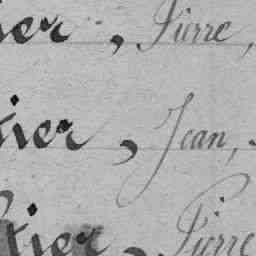 ier, Pierre,
tier, Jean,
tier, Pierre